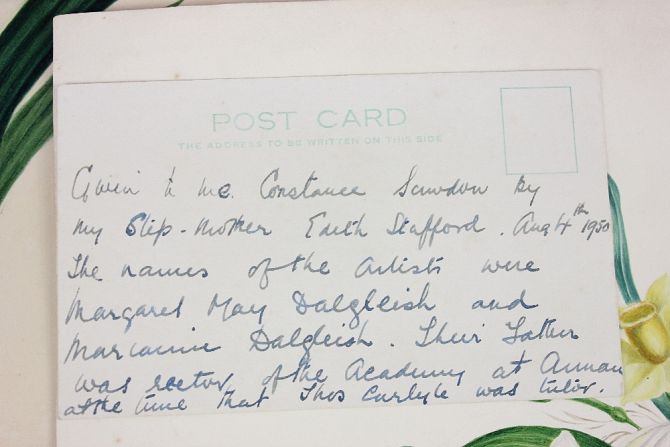 POST CARD
THE ADDRESS TO BE WRITTEN ON THIS SIDE
Given to me Constance Snowdon by
my Step-Mother Edith Stafford. Aug 4th 1950
The names of the artists were
Margaret May Dalgleish and
Dalgleish. Their Father
was rector of the Academy at Annan
at the time that Thos Carlyle was tutor.